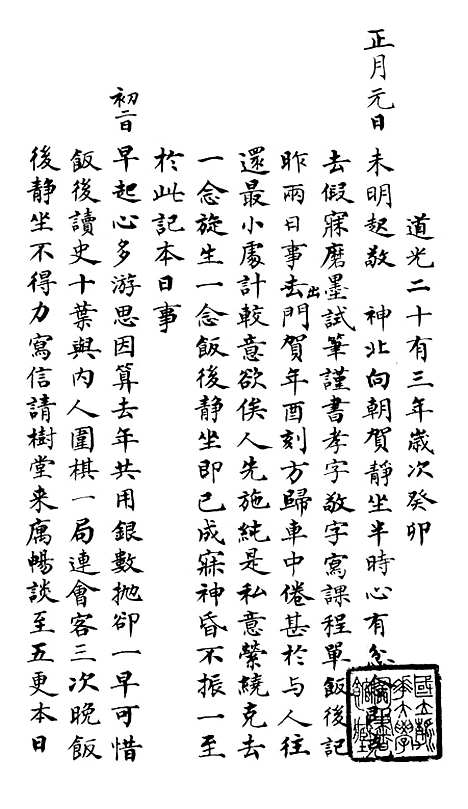 道光二十有三年歲次癸卯
正月元日 未明起敬 神北向朝賀靜坐半時心有忿
去假寐磨墨試筆謹書孝字敬字寫課程單飯後記
昨兩日事去出門賀年酉刻方歸車中倦甚於与人往
還最小處計較意欲俟人先施純是私意縈繞克去
一念旋生一念飯後靜坐即已成寐神昏不振一至
於此記本日事
初二日 早起心多游思因算去年共用銀數拋卻一早可惜
飯後讀史十葉與內人圍棋一局連會客三次晚飯
後靜坐不得力寫信請樹堂来寓暢談至五更本日